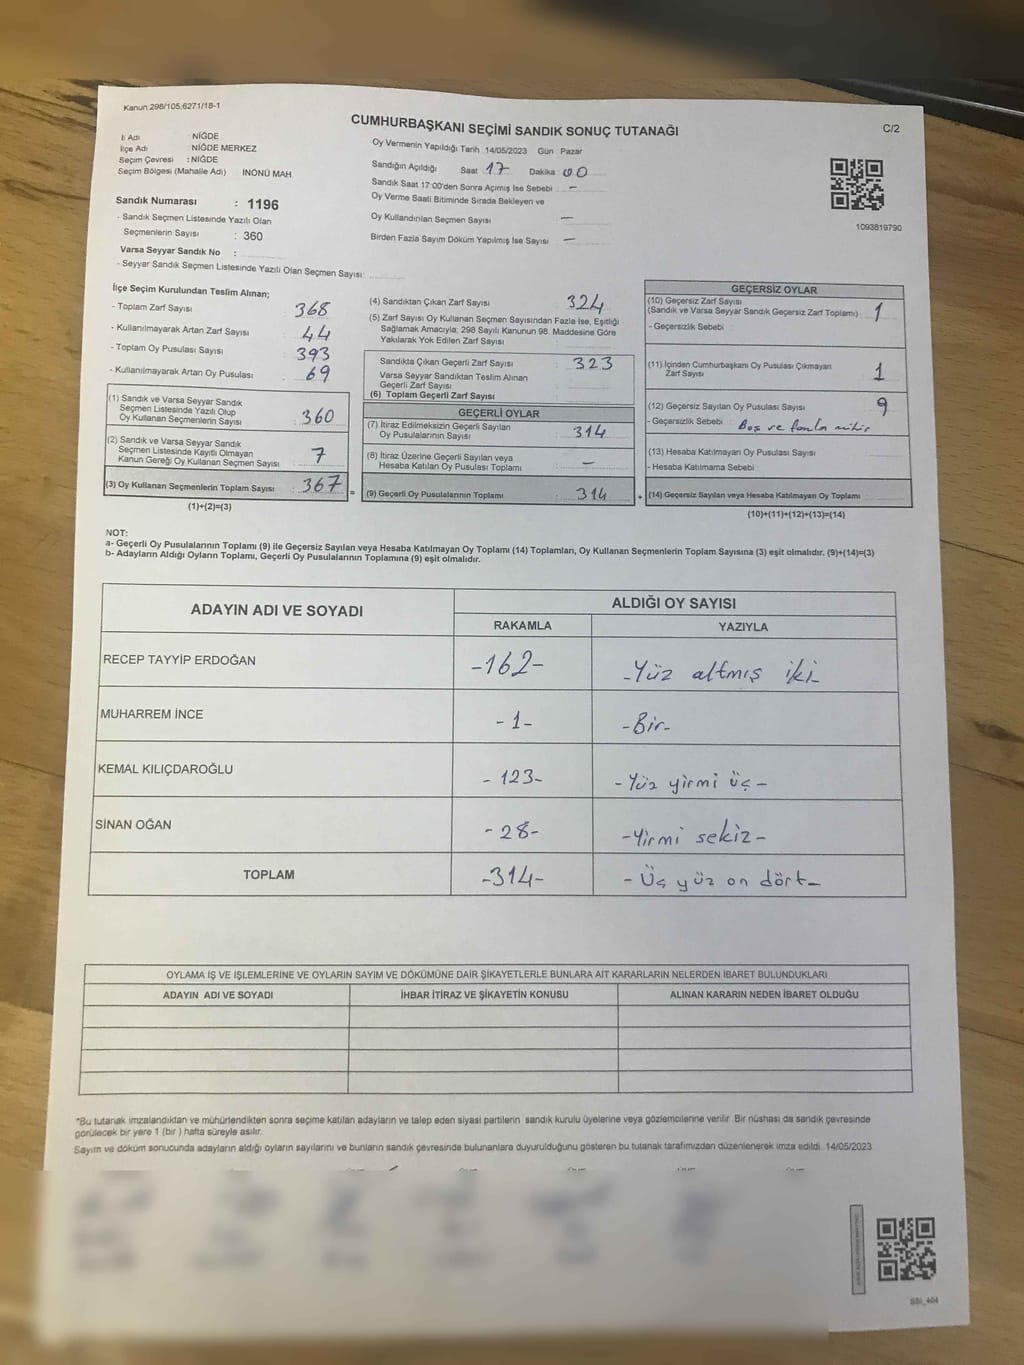 Kanun:298/105,6271/18-1
CUMHURBAŞKANI SEÇİMİ SANDIK SONUÇ TUTANAĞI
C/2
İl Adı : NİĞDE
İlçe Adı : NİĞDE MERKEZ
Seçim Çevresi : NİĞDE
Seçim Bölgesi (Mahalle Adı) İNÖNÜ MAH.
Oy Vermenin Yapıldığı Tarih 14/05/2023 Gün : Pazar
Sandığın Açıldığı Saat 17 Dakika : 00
Sandık Saat 17:00'den Sonra Açımış İse Sebebi : -
Oy Verme Saati Bitiminde Sırada Bekleyen ve
Oy Kullandırılan Seçmen Sayısı -
Birden Fazla Sayım Döküm Yapılmış İse Sayısı -
1093819790
Sandık Numarası : 1196
- Sandık Seçmen Listesinde Yazılı Olan
Seçmenlerin Sayısı : 360
Varsa Seyyar Sandık No :
- Seyyar Sandık Seçmen Listesinde Yazılı Olan Seçmen Sayısı:
İlçe Seçim Kurulundan Teslim Alınan;
- Toplam Zarf Sayısı : 368
- Kullanılmayarak Artan Zarf Sayısı : 44
- Toplam Oy Pusulası Sayısı : 393
- Kullanılmayarak Artan Oy Pusulası : 69
(1) Sandık ve Varsa Seyyar Sandık
Seçmen Listesinde Yazılı Olup
Oy Kullanan Seçmenlerin Sayısı : 360
(2) Sandık ve Varsa Seyyar Sandık
Seçmen Listesinde Kayıtlı Olmayan
Kanun Gereği Oy Kullanan Seçmen Sayısı : 7
(3) Oy Kullanan Seçmenlerin Toplam Sayısı : 367 =
(1)+(2)=(3)
(4) Sandıktan Çıkan Zarf Sayısı : 324
(5) Zarf Sayısı Oy Kullanan Seçmen Sayısından Fazla İse, Eşitliği
Sağlamak Amacıyla; 298 Sayılı Kanunun 98. Maddesine Göre
Yakılarak Yok Edilen Zarf Sayısı :
Sandıkta Çıkan Geçerli Zarf Sayısı : 323
Varsa Seyyar Sandıktan Teslim Alınan
Geçerli Zarf Sayısı :
(6) Toplam Geçerli Zarf Sayısı :
GEÇERLİ OYLAR
(7) İtiraz Edilmeksizin Geçerli Sayılan
Oy Pusulalarının Sayısı : 314
(8) İtiraz Üzerine Geçerli Sayılan veya
Hesaba Katılan Oy Pusulası Toplamı : -
(9) Geçerli Oy Pusulalarının Toplamı : 314 +
GEÇERSİZ OYLAR
(10) Geçersiz Zarf Sayısı
(Sandık ve Varsa Seyyar Sandık Geçersiz Zarf Toplamı) : 1
- Geçersizlik Sebebi :
(11) İçinden Cumhurbaşkanı Oy Pusulası Çıkmayan
Zarf Sayısı : 1
(12) Geçersiz Sayılan Oy Pusulası Sayısı : 9
- Geçersizlik Sebebi : Boş ve fazla mühür
(13) Hesaba Katılmayan Oy Pusulası Sayısı :
- Hesaba Katılmama Sebebi :
(14) Geçersiz Sayılan veya Hesaba Katılmayan Oy Toplamı :
(10)+(11)+(12)+(13)=(14)
NOT:
a- Geçerli Oy Pusulalarının Toplamı (9) ile Geçersiz Sayılan veya Hesaba Katılmayan Oy Toplamı (14) Toplamları, Oy Kullanan Seçmenlerin Toplam Sayısına (3) eşit olmalıdır. (9)+(14)=(3)
b- Adayların Aldığı Oyların Toplamı, Geçerli Oy Pusulalarının Toplamına (9) eşit olmalıdır.
ADAYIN ADI VE SOYADI
ALDIĞI OY SAYISI
RAKAMLA YAZIYLA
RECEP TAYYİP ERDOĞAN -162- -Yüz altmış iki-
MUHARREM İNCE -1- -Bir-
KEMAL KILIÇDAROĞLU -123- -Yüz yirmi üç-
SİNAN OĞAN -28- -Yirmi sekiz-
TOPLAM -314- -Üç yüz on dört-
OYLAMA İŞ VE İŞLEMLERİNE VE OYLARIN SAYIM VE DÖKÜMÜNE DAİR ŞİKAYETLERLE BUNLARA AİT KARARLARIN NELERDEN İBARET BULUNDUKLARI
ADAYIN ADI VE SOYADI İHBAR İTİRAZ VE ŞİKAYETİN KONUSU ALINAN KARARIN NEDEN İBARET OLDUĞU
*Bu tutanak imzalandıktan ve mühürlendikten sonra seçime katılan adayların ve talep eden siyasi partilerin sandık kurulu üyelerine veya gözlemcilerine verilir. Bir nüshası da sandık çevresinde
görülecek bir yere 1 (bir ) hafta süreyle asılır.
Sayım ve döküm sonucunda adayların aldığı oyların sayılarını ve bunların sandık çevresinde bulunanlara duyurulduğunu gösteren bu tutanak tarafımızdan düzenlenerek imza edildi. 14/05/2023